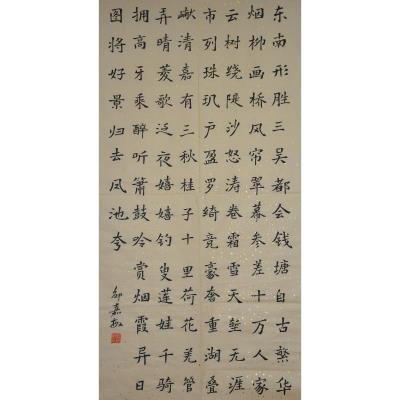 东南形胜三吴都会钱塘自古繁华
烟柳画桥风帘翠幕参差十万人家
云树绕堤沙怒涛卷霜雪天堑无涯
市列珠玑户盈罗绮竞豪奢重湖叠
巘清嘉有三秋桂子十里荷花羌管
弄晴菱歌泛夜嬉嬉钓叟莲娃千骑
拥高牙乘醉听箫鼓吟赏烟霞异日
图将好景归去凤池夸
邵嘉